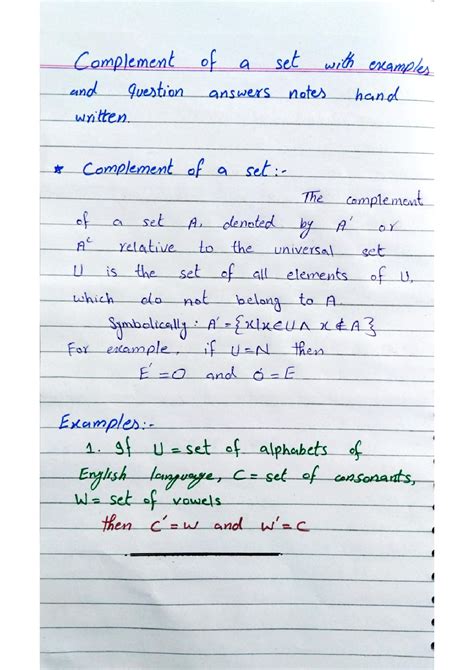 Complement of a set with examples
and Question answers notes hand
written.
* Complement of a set:-
The complement
of a set A, denoted by A' or
Aᶜ relative to the universal set
U is the set of all elements of U,
which do not belong to A.
Symbolically: A'={x|x∈U∧ x∉A}
For example, if U=N then
E'=O and O'=E
Examples:-
1. If U=set of alphabets of
English language, C= set of consonants,
W= set of vowels
then C'=W and W'=C